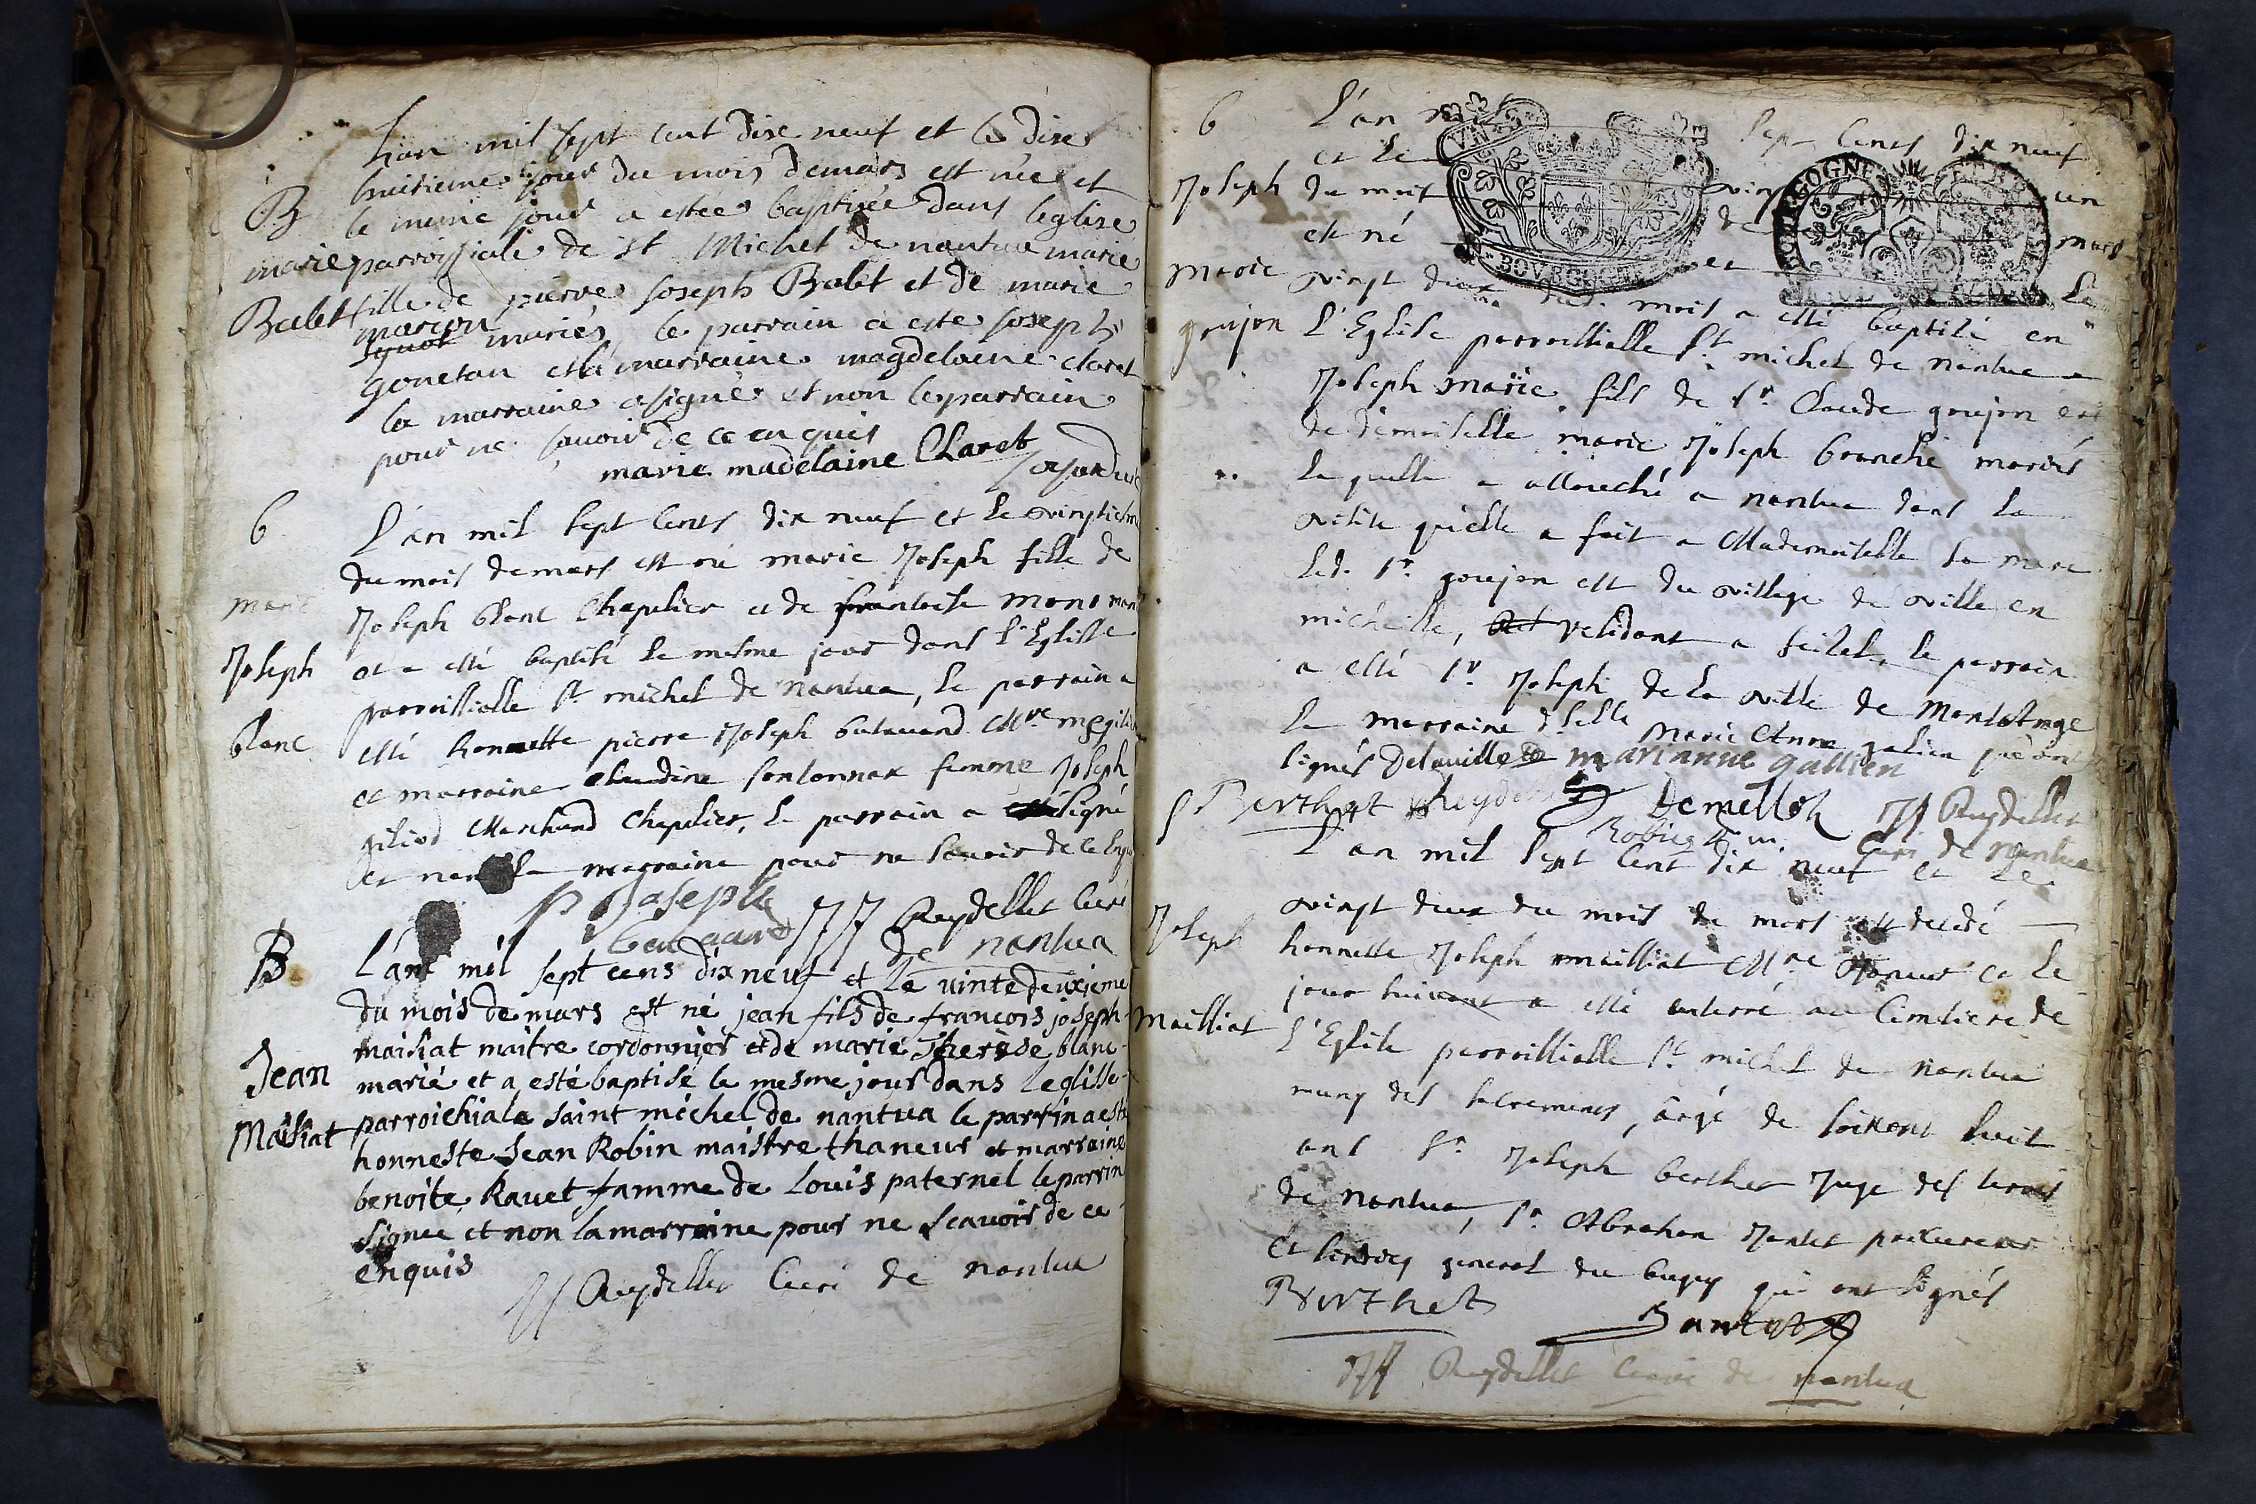 Lan mil sept cent dixe neuf et le dixe
huitieme jour du mois demars est née et
B le meme jour a estee baptisée dans leglise
marie parroissiale de st Michel de nantua marie
Balet fille de pierre Joseph Balet et de marie
maron mariés le parrain a este Joseph
gonetan et la marraine magdelaine claret
la marraine a signé et non le parrain
pour ne savoir de ce enquis
marie madelaine Claret
b L'an mil sept cents dix neuf et le vingtiem
du mois de mars est né marie Joseph fille de
marie Joseph blanc Chapelier et de francoise
Joseph et a esté baptisé le mesme jour dans l'Eglisse
parroissielle st michel de Nantua, le parrain a
blanc esté honnette pierre Joseph butavand Mre
et marraine Claudine sontonnax femme Joseph
giliod Marchand Chapelier, le parrain a signé
et non la marraine pour ne savoir de ce
P Joseph JJ Reydellet Curé
de nantua
B L'ant mil sept cens dix neuf et le vinte deuxieme
du mois de mars est né jean fils de francois joseph
maisiat maitre cordonnier et de marie Therese blanc
Jean marié et a esté baptisé le mesme jour dans leglisse
Maisiat parroichiale saint michel de nantua le parrin a este
honneste Jean Robin maistre thaneur et marraine
benoite Ravet famme de Louis paternel le parrin
signee et non la marraine pour ne scavoir de ce
enquis
JJ Reydellet Curé de nantua
6 L'an mil sept Cents dix neuf
et le vingt un
Joseph du mois de mars
est né et le
marie vingt deux dud. mois a esté baptisé en
goujon L'Eglise parroissielle st michel de Nantua
Joseph marie fils de sr. Claude goujon et
de demoiselle marie Joseph branche mariés
la quelle a accouché a nantua dans la
visite qu'elle a fait a Mademoiselle sa mere
led. sr. goujon est du village de ville en
micheille, residant a seissel, le parrain
a esté sr. Joseph de la ville de
la marraine dlle Marie Anne galien qui ont
signés Delaville marianne gallien
Berthet Demelloz JJ Reydellet
Curé de nantua
L'an mil sept Cent dix neuf et le
vingt deux du mois de mars est decedé
Joseph honnette Joseph mailliat Mre et le
jour suivant a esté enterré au Cimtiere de
Mailliat L'Eglise parroissielle st michel de Nantua
muny des sacremens, aagé de soixant huit
ans sr Joseph berthet Juge des terres
de nantua, sr. Abraham Jantet procureur
et sindicq general du bugey qui ont signés
Berthet Jantet
JJ Reydellet Curé de nantua
BOVRGOGNE
BOURGOGNE